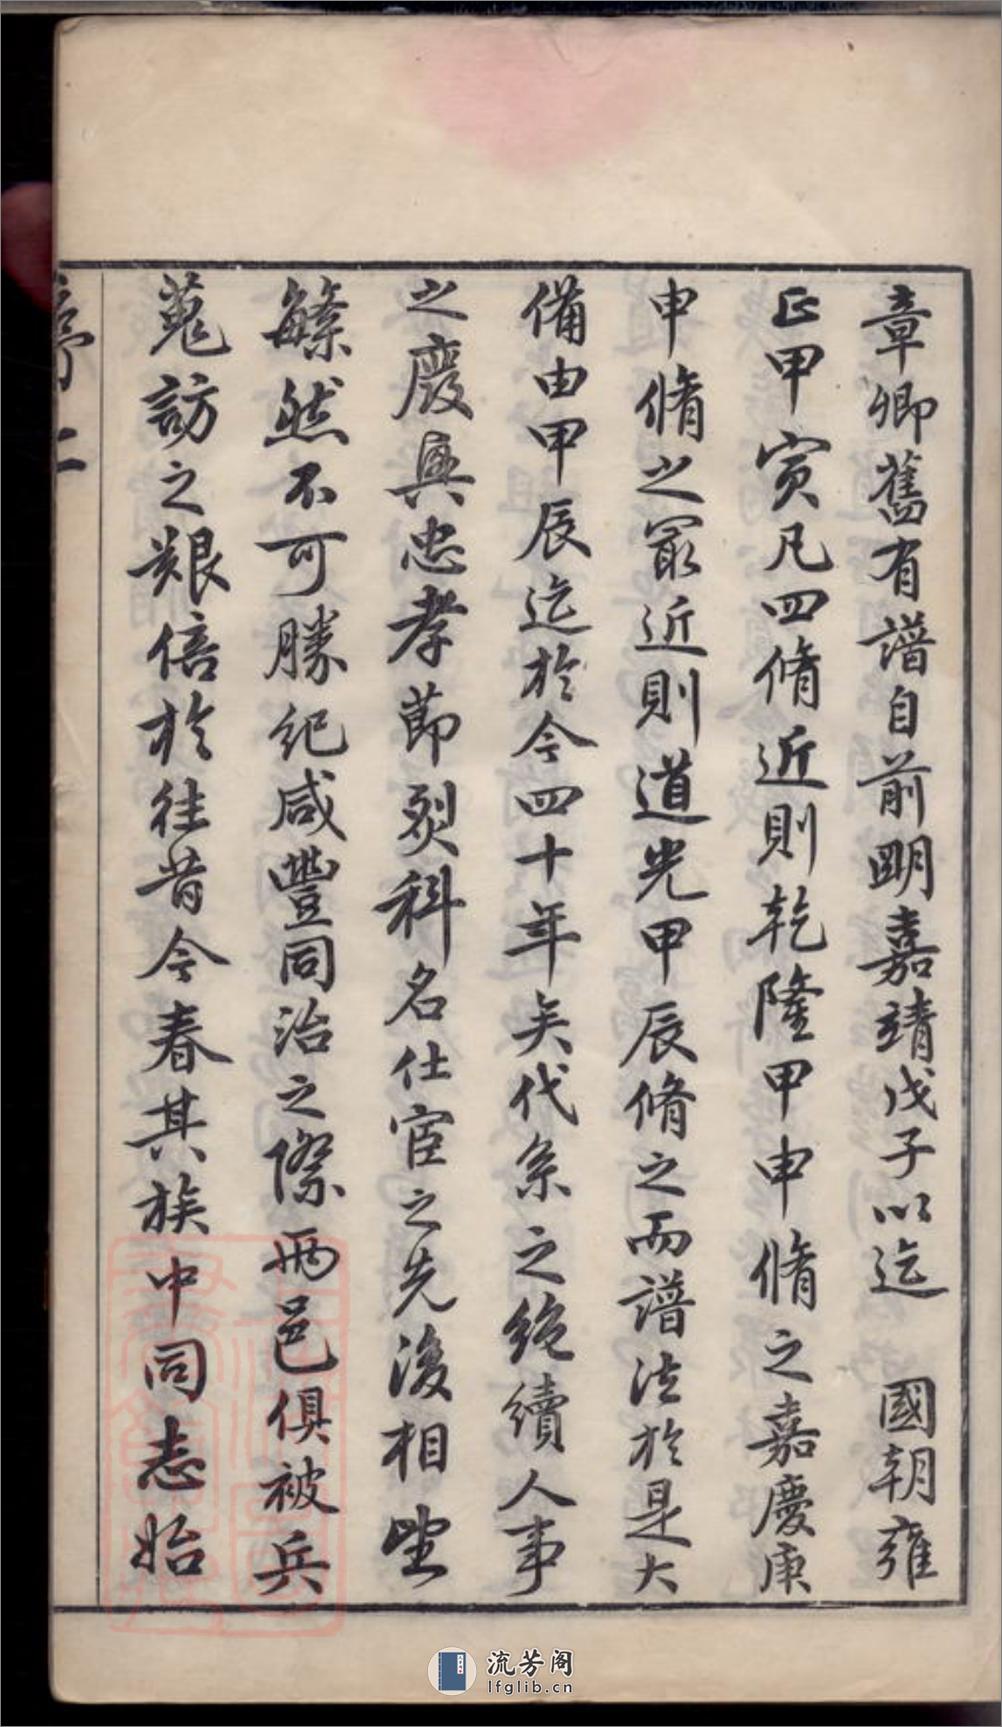 章卿舊有譜自前明嘉靖戊子以迄　國朝雍
正甲寅凡四脩近則乾隆甲申脩之嘉慶庚
申脩之冣近則道光甲辰脩之而譜法於是大
備由甲辰迄於今四十年矣代系之絶續人事
之廢興忠孝節烈科名仕宦之先後相望
縣然不可勝紀咸豐同治之際兩邑俱被兵
蒐訪之艱倍於往昔今春其族中同志始
序 二
流芳阁
lfglib.cn